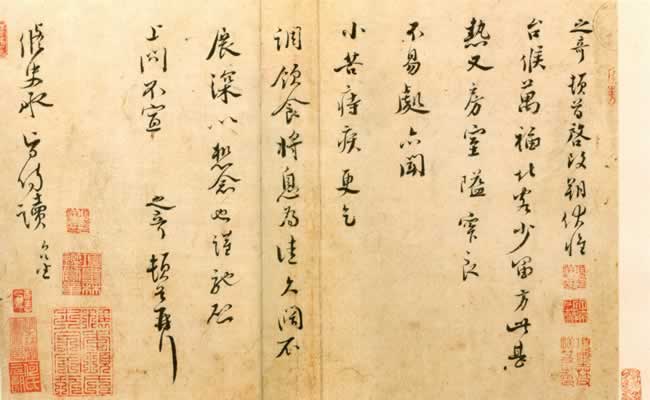 之奇頓首啓改朔伏惟
台候萬福北客少留方此甚
熱又房室隘窄良
不易處亦聞
小苦痔疾更乞
調飲食將息為佳久闊不
展深以想念也謹馳啓
上問不宣 之奇頓首再拜
修史承旨侍讀 台坐